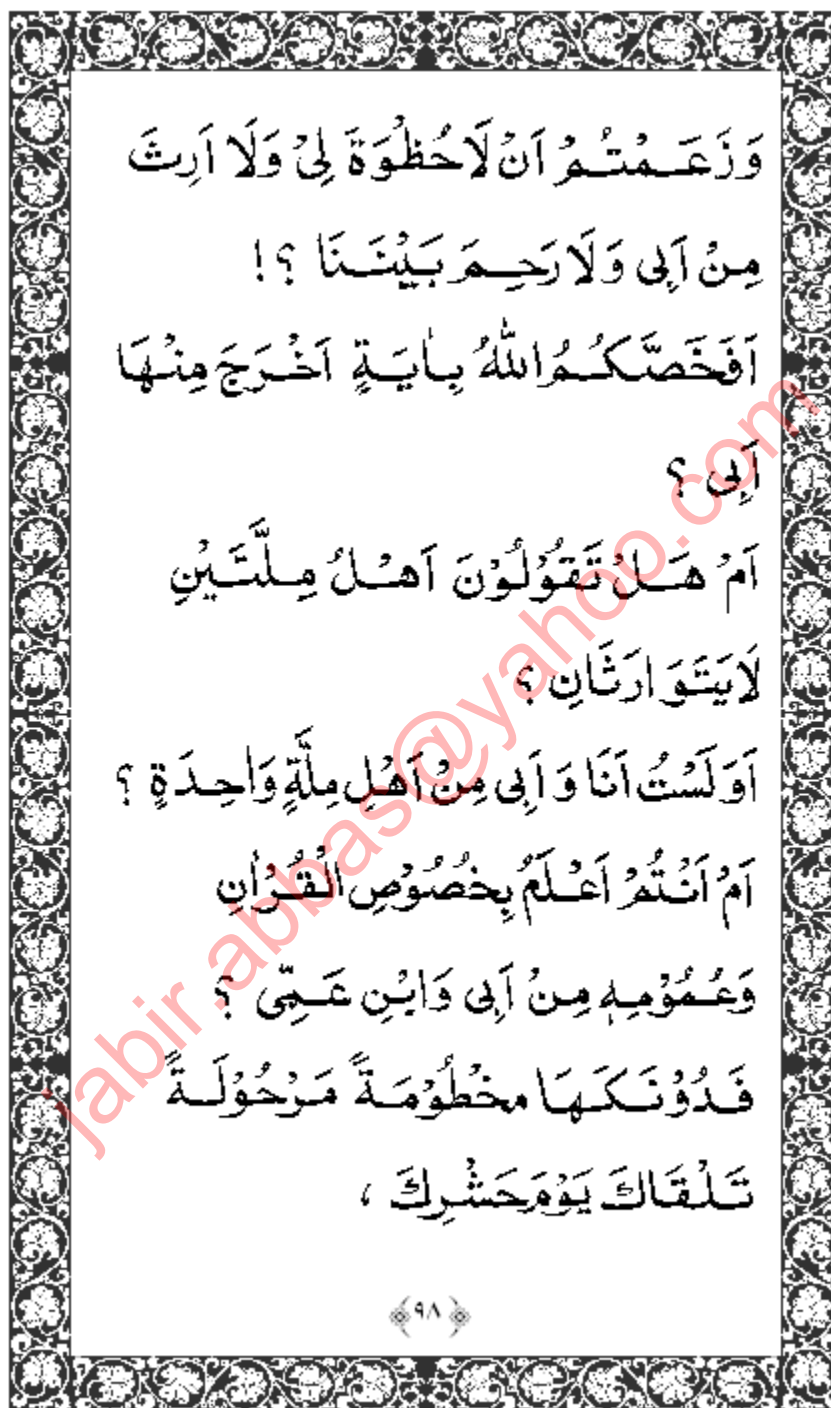 وَزَعَمْتُمْ اَنْ لَاحُظْوَةَ لِيْ وَلَا اَرِثَ
مِنْ اَبِى وَلَا رَحِمَ بَيْنَنَا ؟!
اَفَخَصَّكُمُ اللّٰهُ بِاٰيَةٍ اَخْرَجَ مِنْهَا
اَبِى ؟
اَمْ هَلْ تَقُوْلُوْنَ اَهْلُ مِلَّتَيْنِ
لَايَتَوَارَثَانِ ؟
اَوَلَسْتُ اَنَا وَ اَبِى مِنْ اَهْلِ مِلَّةٍ وَاحِدَةٍ ؟
اَمْ اَنْتُمْ اَعْلَمُ بِخُصُوْصِ الْقُرْاٰنِ
وَعُمُوْمِهٖ مِنْ اَبِى وَابْنِ عَمِّى ؟
فَدُوْنَكَهَا مخْطُوْمَةً مَرْحُوْلَةً
تَلْقَاكَ يَوْمَ حَشْرِكَ ،
﴿٩٨﴾
jabir.abbas@yahoo.com